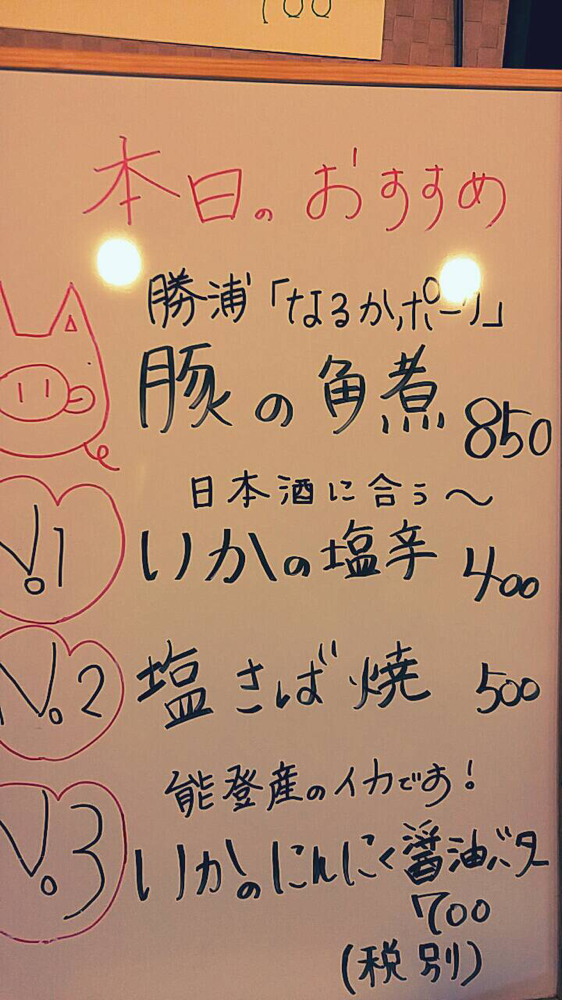 700
本日のおすすめ
勝浦「なるかポーク」
豚の角煮 850
日本酒に合う〜
No.1 いかの塩辛 400
No.2 塩さば焼 500
能登産のイカです!
No.3 いかのにんにく醤油バター
700
(税別)